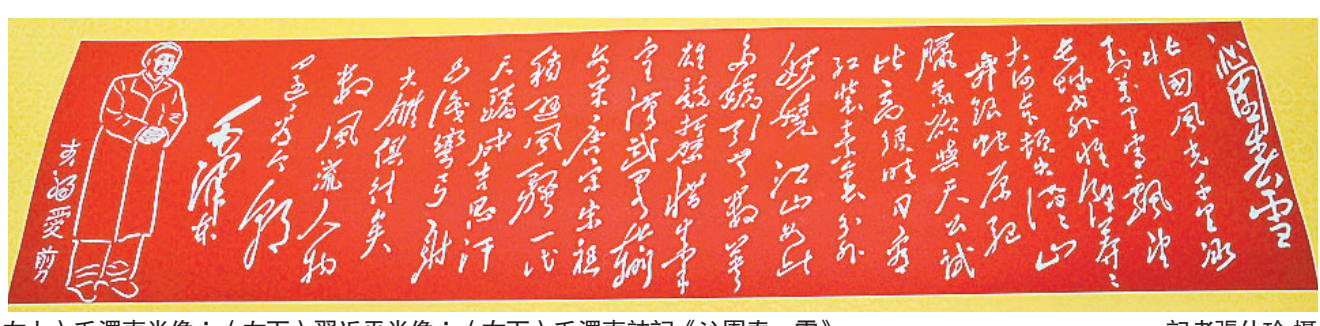 沁園春雪
北國風光千里冰
封萬里雪飄望
長城內外惟餘莽々
大河上下頓失滔々山
舞銀蛇原馳
臘象欲與天公試
比高須晴日看
紅裝素裹分外
妖嬈 江山如此
多嬌引無數英
雄競折腰惜秦皇
漢武略輸
文采唐宗宋祖
稍遜風騷一代
天驕成吉思汗
只識彎弓射
大雕俱往矣
數風流人物
還看今朝
毛澤東
福愛剪
毛澤東肖像；
習近平肖像；
毛澤東詩詞《沁園春·雪》
記者張仕珍 攝